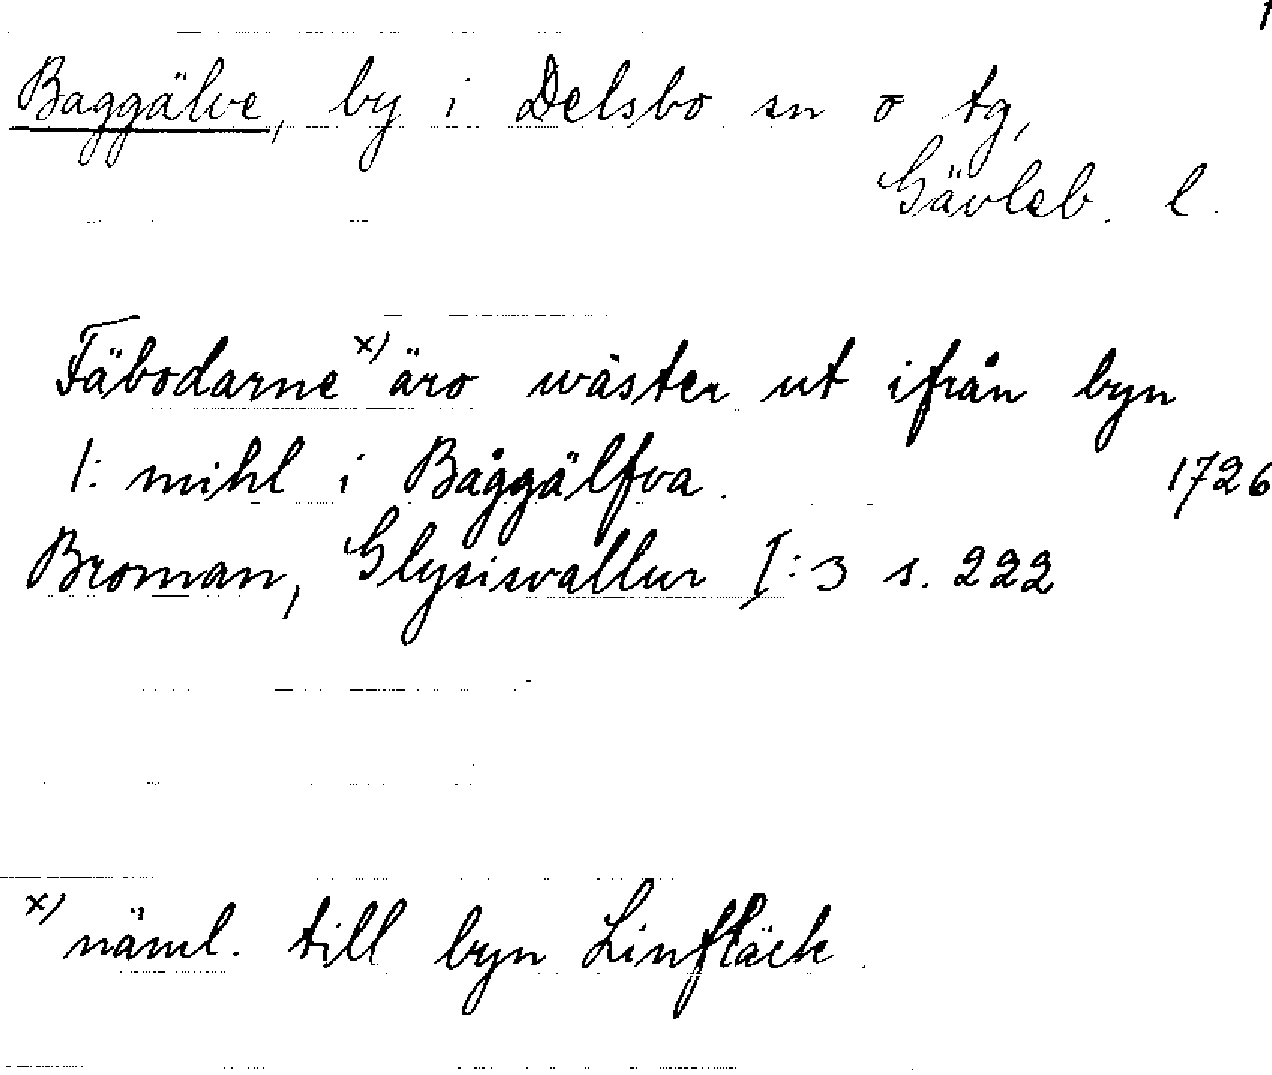 Baggälve, by i Delsbo sn o tg,
Gävleb. l.
Fäbodarne x) äro wäster ut ifrån byn
1: mihl i Baggälfva. 1726
Broman, Glysisvallur I:3 s. 222
x) näml. till byn Linfläck